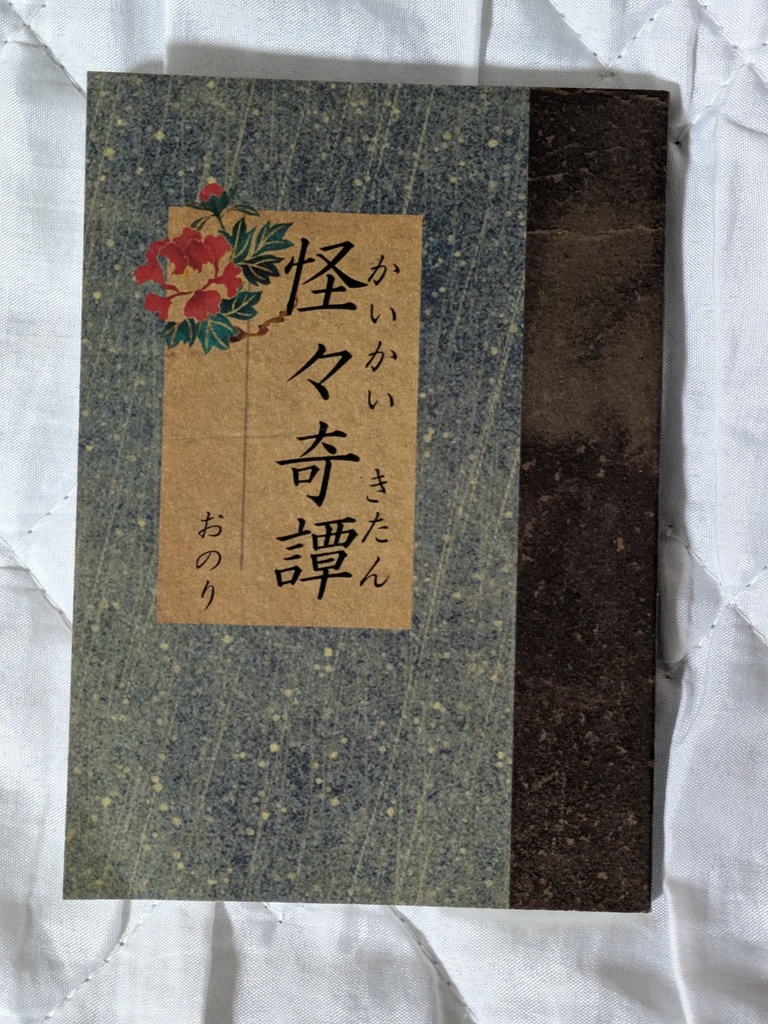 かいかい きたん
怪々奇譚
おのり